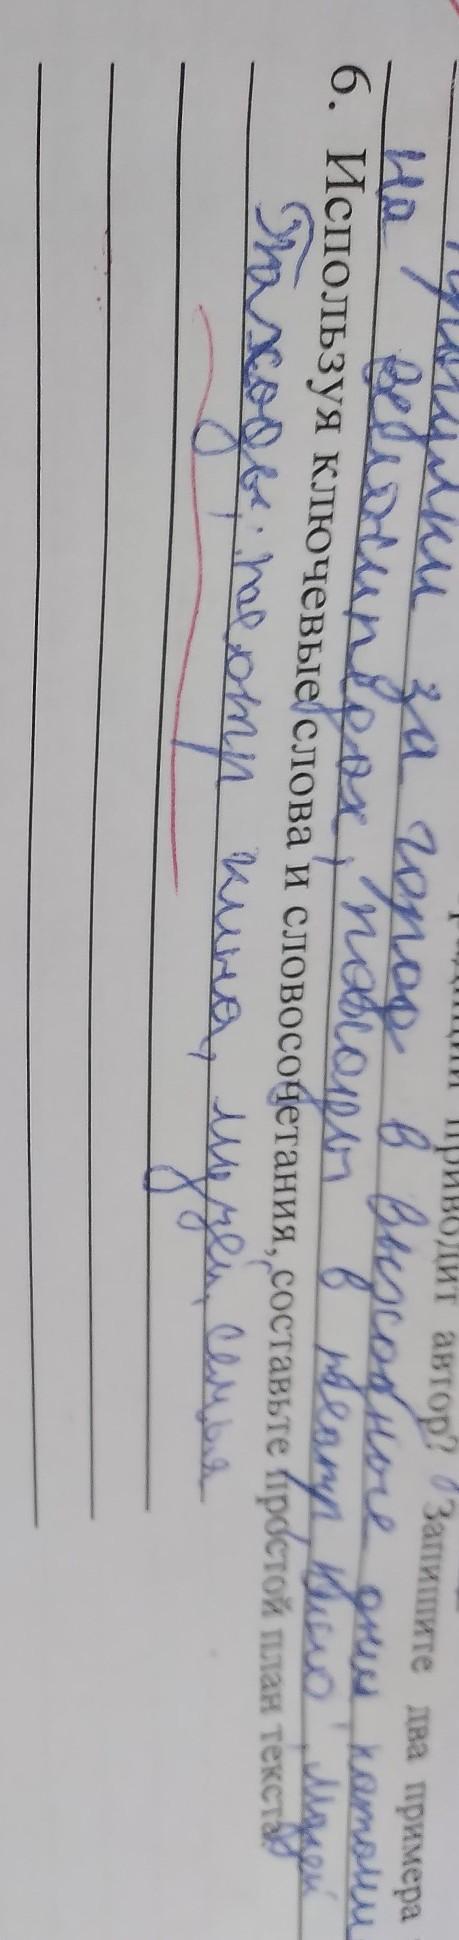 приводит автор? Запишите два примера
за город в выходные дни, катани
на велосипедах, походы в театр, кино, музей
6. Используя ключевые слова и словосочетания, составьте простой план текста.
Походы: театр кино, музей, семья